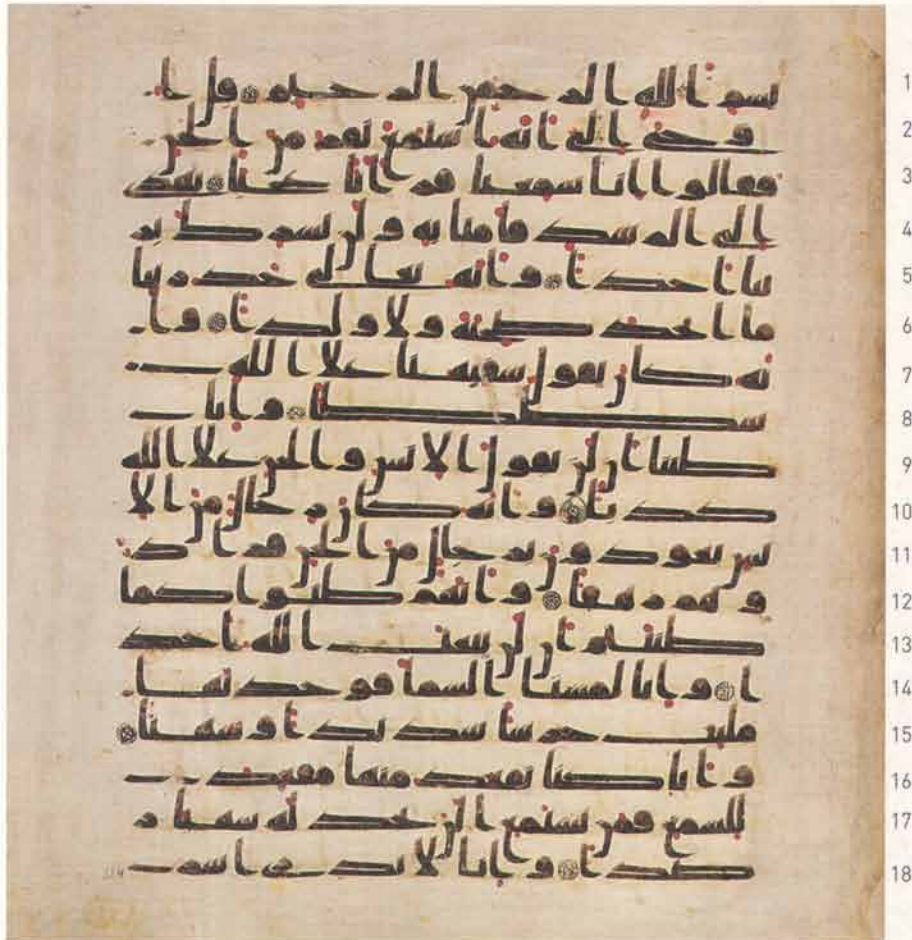 بسم الله الرحمن الرحيم قل ا 1
وحي الي انه استمع نفر من الجن 2
فقالوا انا سمعنا قرانا عجبا يهدي 3
الى الرشد فامنا به ولن نشرك بر 4
بنا احدا وانه تعالى جد ربنا 5
ما اتخذ صحبة ولا ولدا وا 6
نه كان يقول سفيهنا علا الله 7
شططا وانا 8
ظننا ان لن تقول الانس والجن علا الله 9
كذبا وانه كان رجال من الا 10
نس يعوذون برجال من الجن فزاد 11
وهم رهقا وانهم ظنوا كما 12
ظننتم ان لن يبعث الله احد 13
ا وانا لمسنا السما فوجدنها 14
ملئت حرسا شديدا وشهبا 15
وانا كنا نقعد منها مقعد 16
للسمع فمن يستمع الان يجد له شهابا ر 17
صدا وانا لا ندري اشر 18